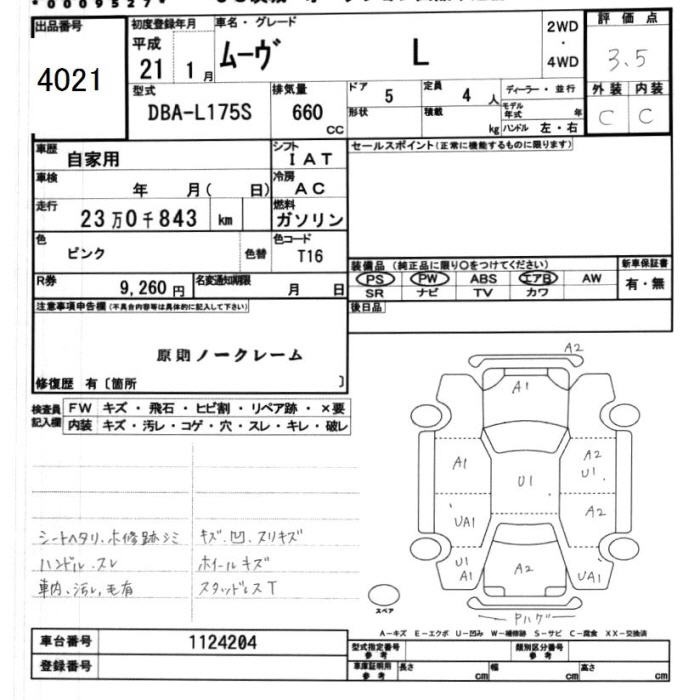 *0009527*
出品番号
4021
初度登録年月
平成
21 1月
車名・グレード
ムーヴ L
2WD
・
4WD
評価点
3.5
外装 内装
C C
型式
DBA-L175S
排気量
660
cc
ドア 5
定員 4人
形状
積載 kg
ディーラー・並行
モデル年式 年
ハンドル 左・右
車歴 自家用
シフト IAT
車検 年 月( 日)
冷房 AC
走行 23万0千843 km
燃料 ガソリン
色 ピンク 色替
色コード T16
R券 9,260円
名変通知期限 月 日
セールスポイント(正常に機能するものに限ります)
装備品 (純正品に限り○をつけてください)
新車保証書
PS PW ABS エアB AW
SR ナビ TV カワ
有・無
後日品
注意事項申告欄(不具合内容等は具体的に記入して下さい)
原則ノークレーム
修復歴 有〔箇所 〕
検査員記入欄
FW キズ・飛石・ヒビ割・リペア跡・×要
内装 キズ・汚レ・コゲ・穴・スレ・キレ・破レ
シートヘタリ、木修跡シミ
ハンドル・スレ
車内、汚レ、毛有
キズ、凹、スリキズ
ホイールキズ
スタッドレスT
A2
A1
A1
A2
U1
U1
UA1
A2
U1
A1
A2
UA1
Pハゲ
スペア
A-キズ E-エクボ U-凹み W-補修跡 S-サビ C-腐食 XX-交換済
車台番号 1124204
登録番号
型式指定番号 参考
類別区分番号 参考
車庫証明用 参考
長さ cm
幅 cm
高さ cm